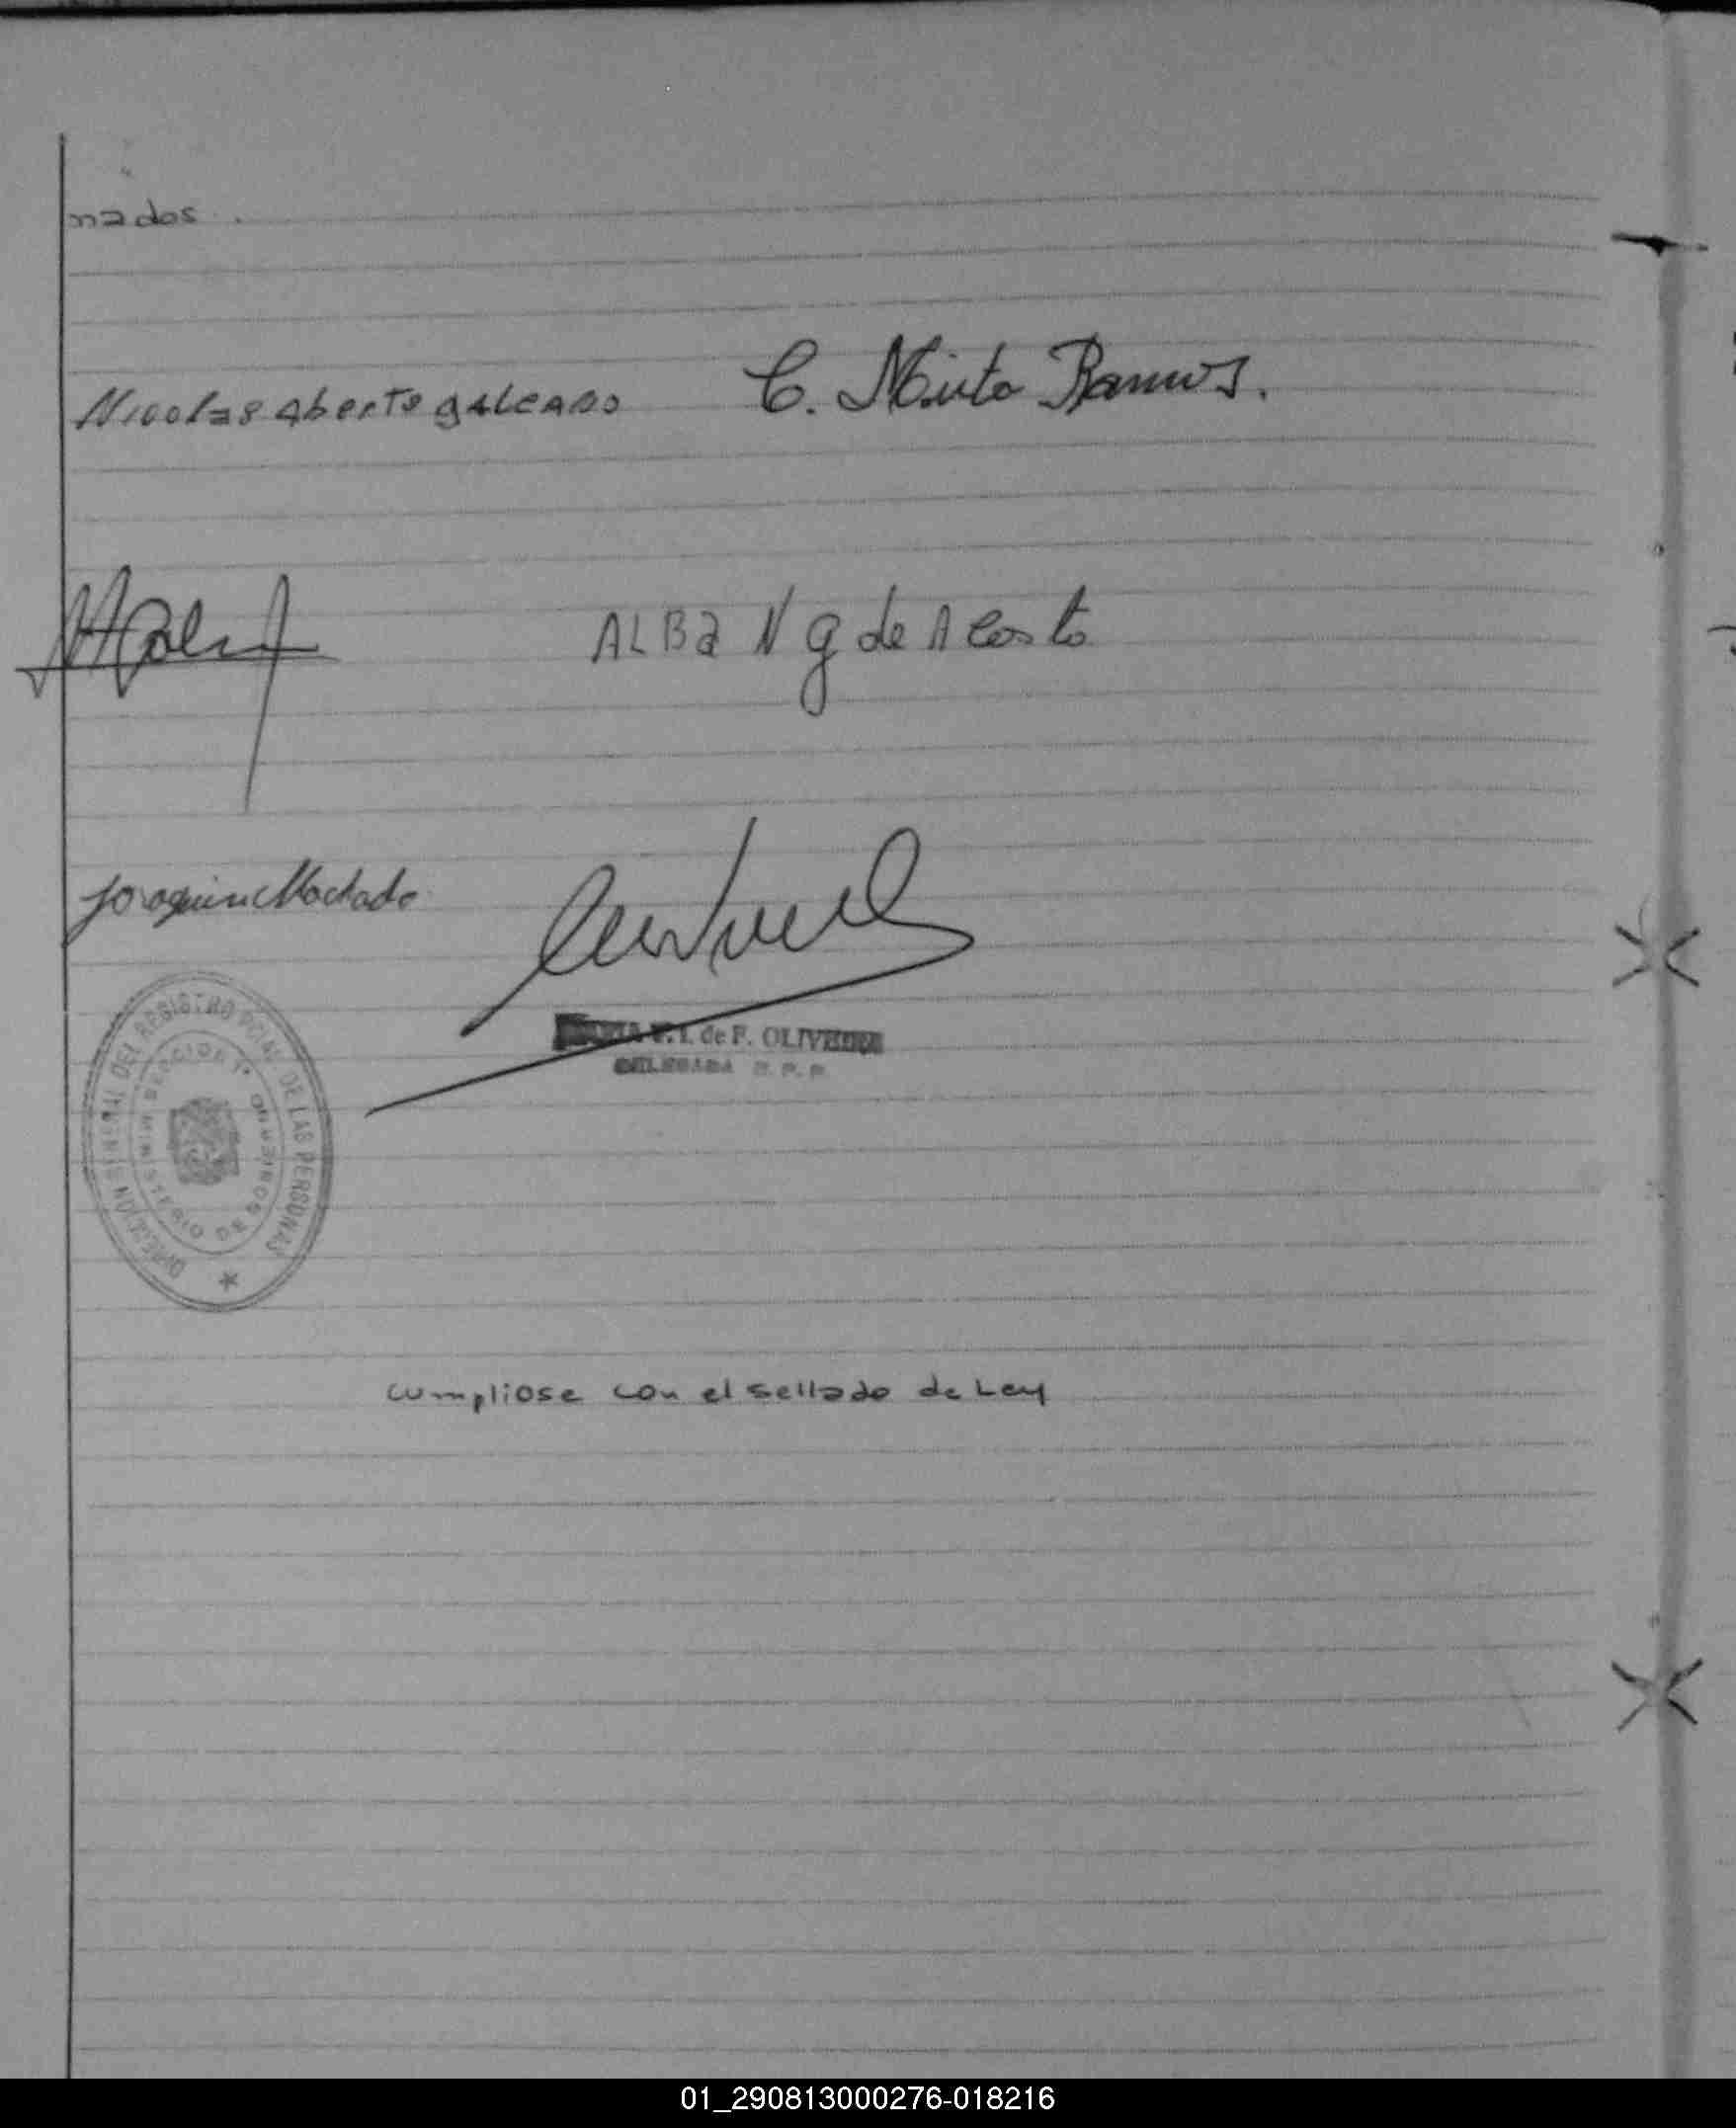 nados.
Nicolas aberto galeano C. Mirta Ramos.
ALBa N g de Acosta
Joraquin Machado
de F. OLIVEIRA
DELEGADA R. P. P.
DIRECCION GENERAL DEL REGISTRO PCIAL DE LAS PERSONAS
MINISTERIO DE GOBIERNO
SECCION 1ª
cumpliose con el sellado de Ley
01_290813000276-018216